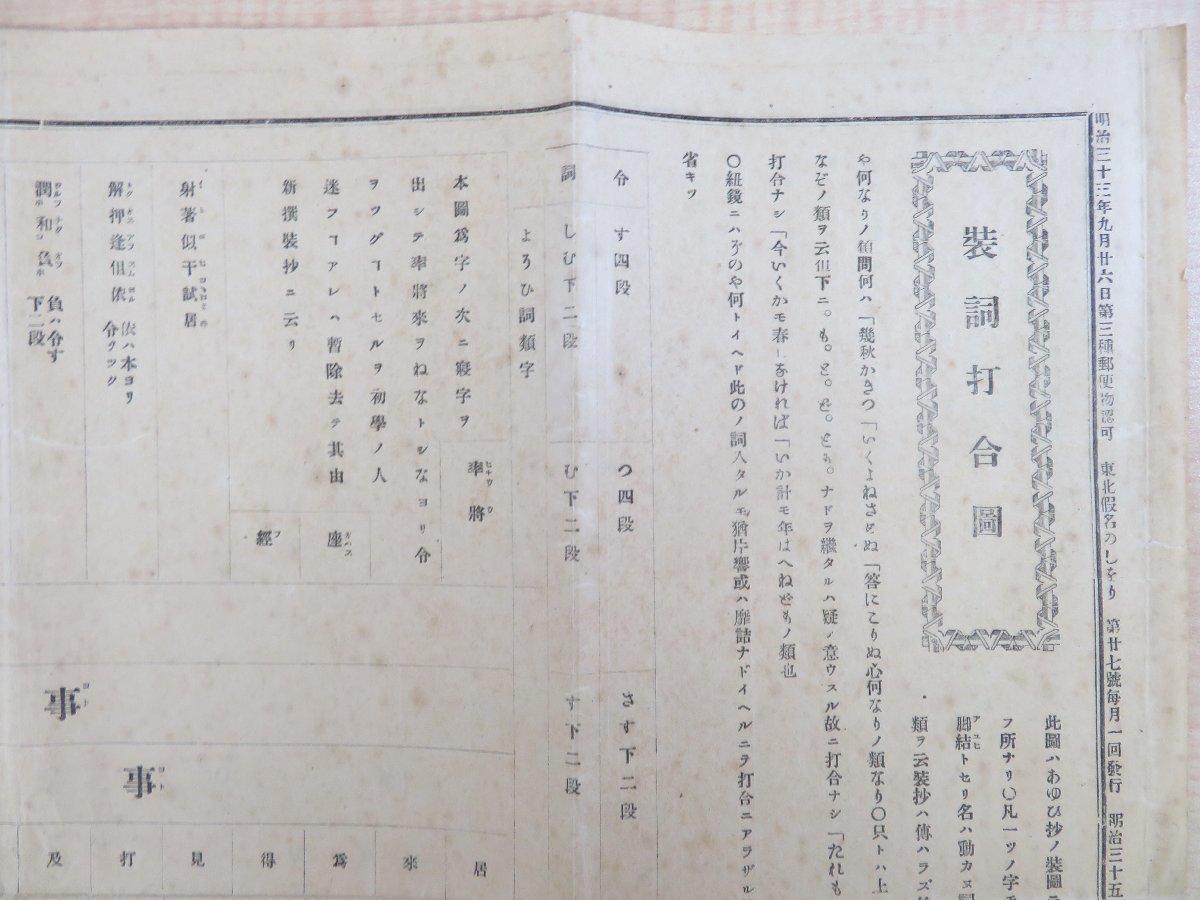 明治三十三年九月廿六日第三種郵便物認可 東北假名のしをり 第廿七號每月一回發行 明治三十五
裝詞打合圖
此圖ハあゆひ抄ノ裝圖ニ
フ所ナリ〇凡一ツノ字モ
脚結トセリ名ハ動カヌ詞
類ヲ云裝抄ハ傳ハラズ
や何なりノ類問何ハ「幾秋かきつ「いくよねさめぬ「答にこりぬ心何なりノ類なり〇只トハ上
なぞノ類ヲ云但下ニ。も。と。を。とも。ナドヲ繼タルハ疑ノ意ウスル故ニ打合ナシ「たれも
打合ナシ「今いくかモ春しなければ「いか計モ年はへねどもノ類也
〇紐鏡ニハぞのや何トイヘド此のノ詞入タルモ猶片響或ハ靡詰ナドイヘルニヲ打合ニアラザル
省キツ
令 す四段 つ四段 さす下二段
詞 しむ下二段 む下二段 す下二段
よろひ詞類字
本圖爲字ノ次ニ寢字ヲ
出シテ率將來ヲねなトシなヨリ令
ヲツグヿトセルヲ初學ノ人
迷フヿアレハ暫除去テ其由
新撰裝抄ニ云リ
率將
座
經
射著似干試居
解押逢俱依 依ハ本ヨリ令ウツク
潤和負 負ハ令す下二段
事
事
居
來
爲
得
見
打
及